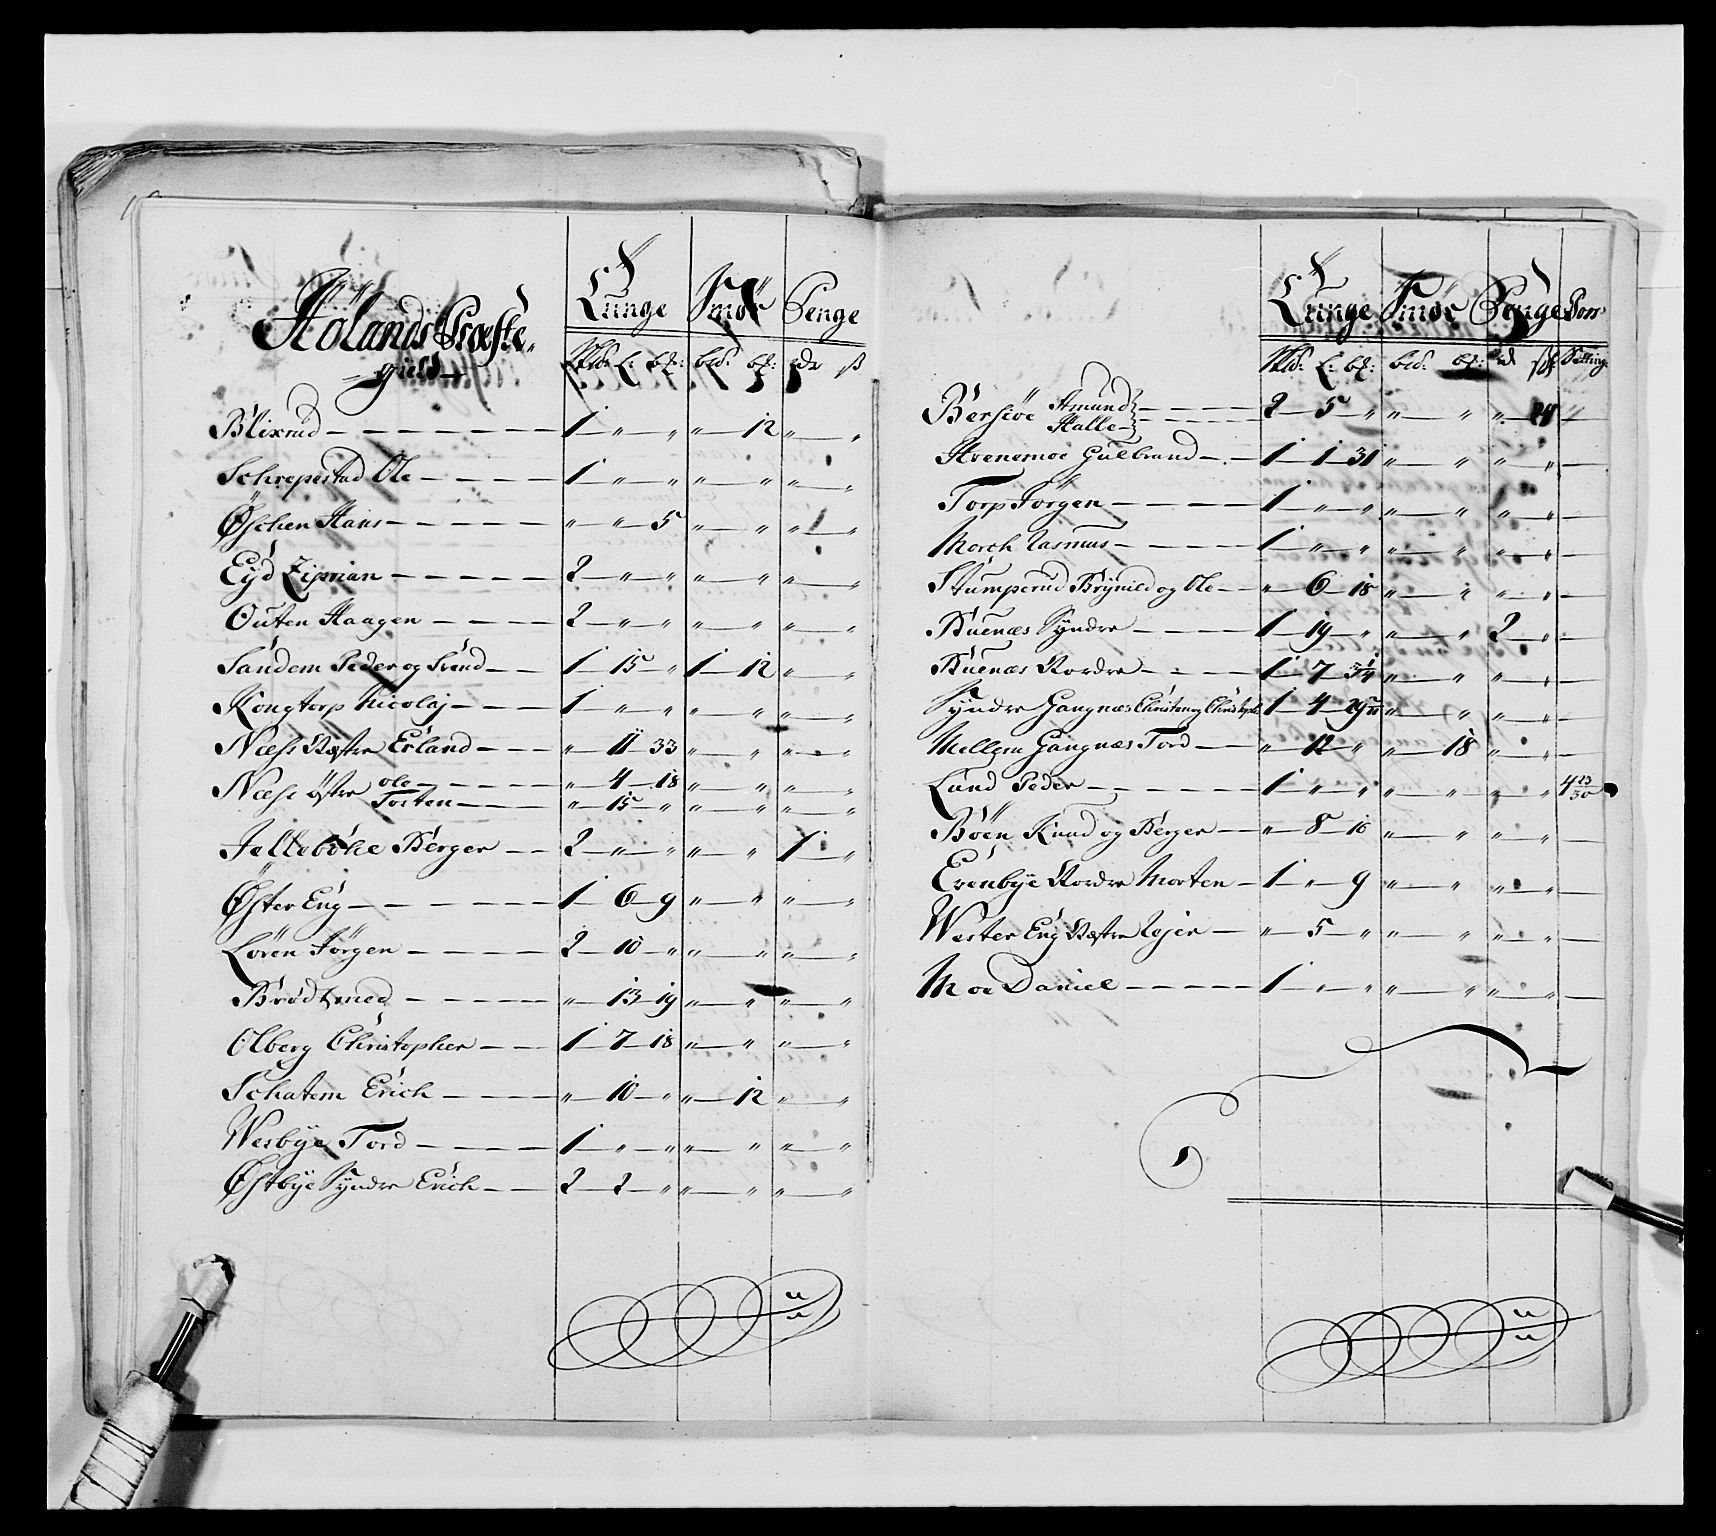 Hölands Præste-
gield
Tunge Smör Penge
Skd: L: bℓ: bℓd: bℓ: rdr ß
Blixrud — 1 " " " 12 " "
Schrepestad Ole — 1 " " " " " "
Øschen Hans — " " 5 " " " "
Eyd Ziprian — 2 " " " " " "
Outen Haagen — 2 " " " " " "
Sandem Peder og Svend — 1 15 " 1 12 " "
Kongtorp Nicolaj — 1 " " " " " "
Næss Væstre Erland — " 11 33 " " " "
Næss østre Ole — " 4 18 " " " "
Torten — " 15 " " " " "
Jelleböke Berger — 2 " " " " 1 "
Øster Eng — 1 6 9 " " " "
Lören Jörgen — 2 10 " " " " "
Brödtzmed — " 13 19 " " " "
Olberg Christopher — 1 7 18 " " " "
Schatem Erich — " 10 " " 12 " "
Wesbÿe Tord — 1 " " " " " "
Østbÿe Syndre Erich — 2 2 " " " " "
Tunge Smör Penge Korn
Skd: L: bℓ: bℓd: bℓ: rd ß Setting
Bersiöe Amund
Halle — 2 5 " " " " 24 —
Hvenemoe Gulbrand — 1 1 31 " " " " —
Torp Jörgen — 1 " " " " " " —
Morch Rasmus — 1 " " " " " " —
Stumperud Brÿnild og Ole — " 6 18 " " " " —
Buenæs Syndre — 1 19 " " " 2 " —
Buenæs Nordre — 1 7 3¼ " " " " —
Syndre Gangnæs Christen og Christoph — 1 4 " " " " —
Mellem Gangnæs Tord — " 12 " " 18 " " —
Lund Peder — 1 " " " " " " 4 23/30
Böen Knud og Berger — " 8 16 " " " " —
Erenbÿe Nordre Morten — 1 " 9 " " " " —
Wester Eng Væstre Rejer — " 5 " " " " " —
Moe Daniel — 1 " " " " " " —